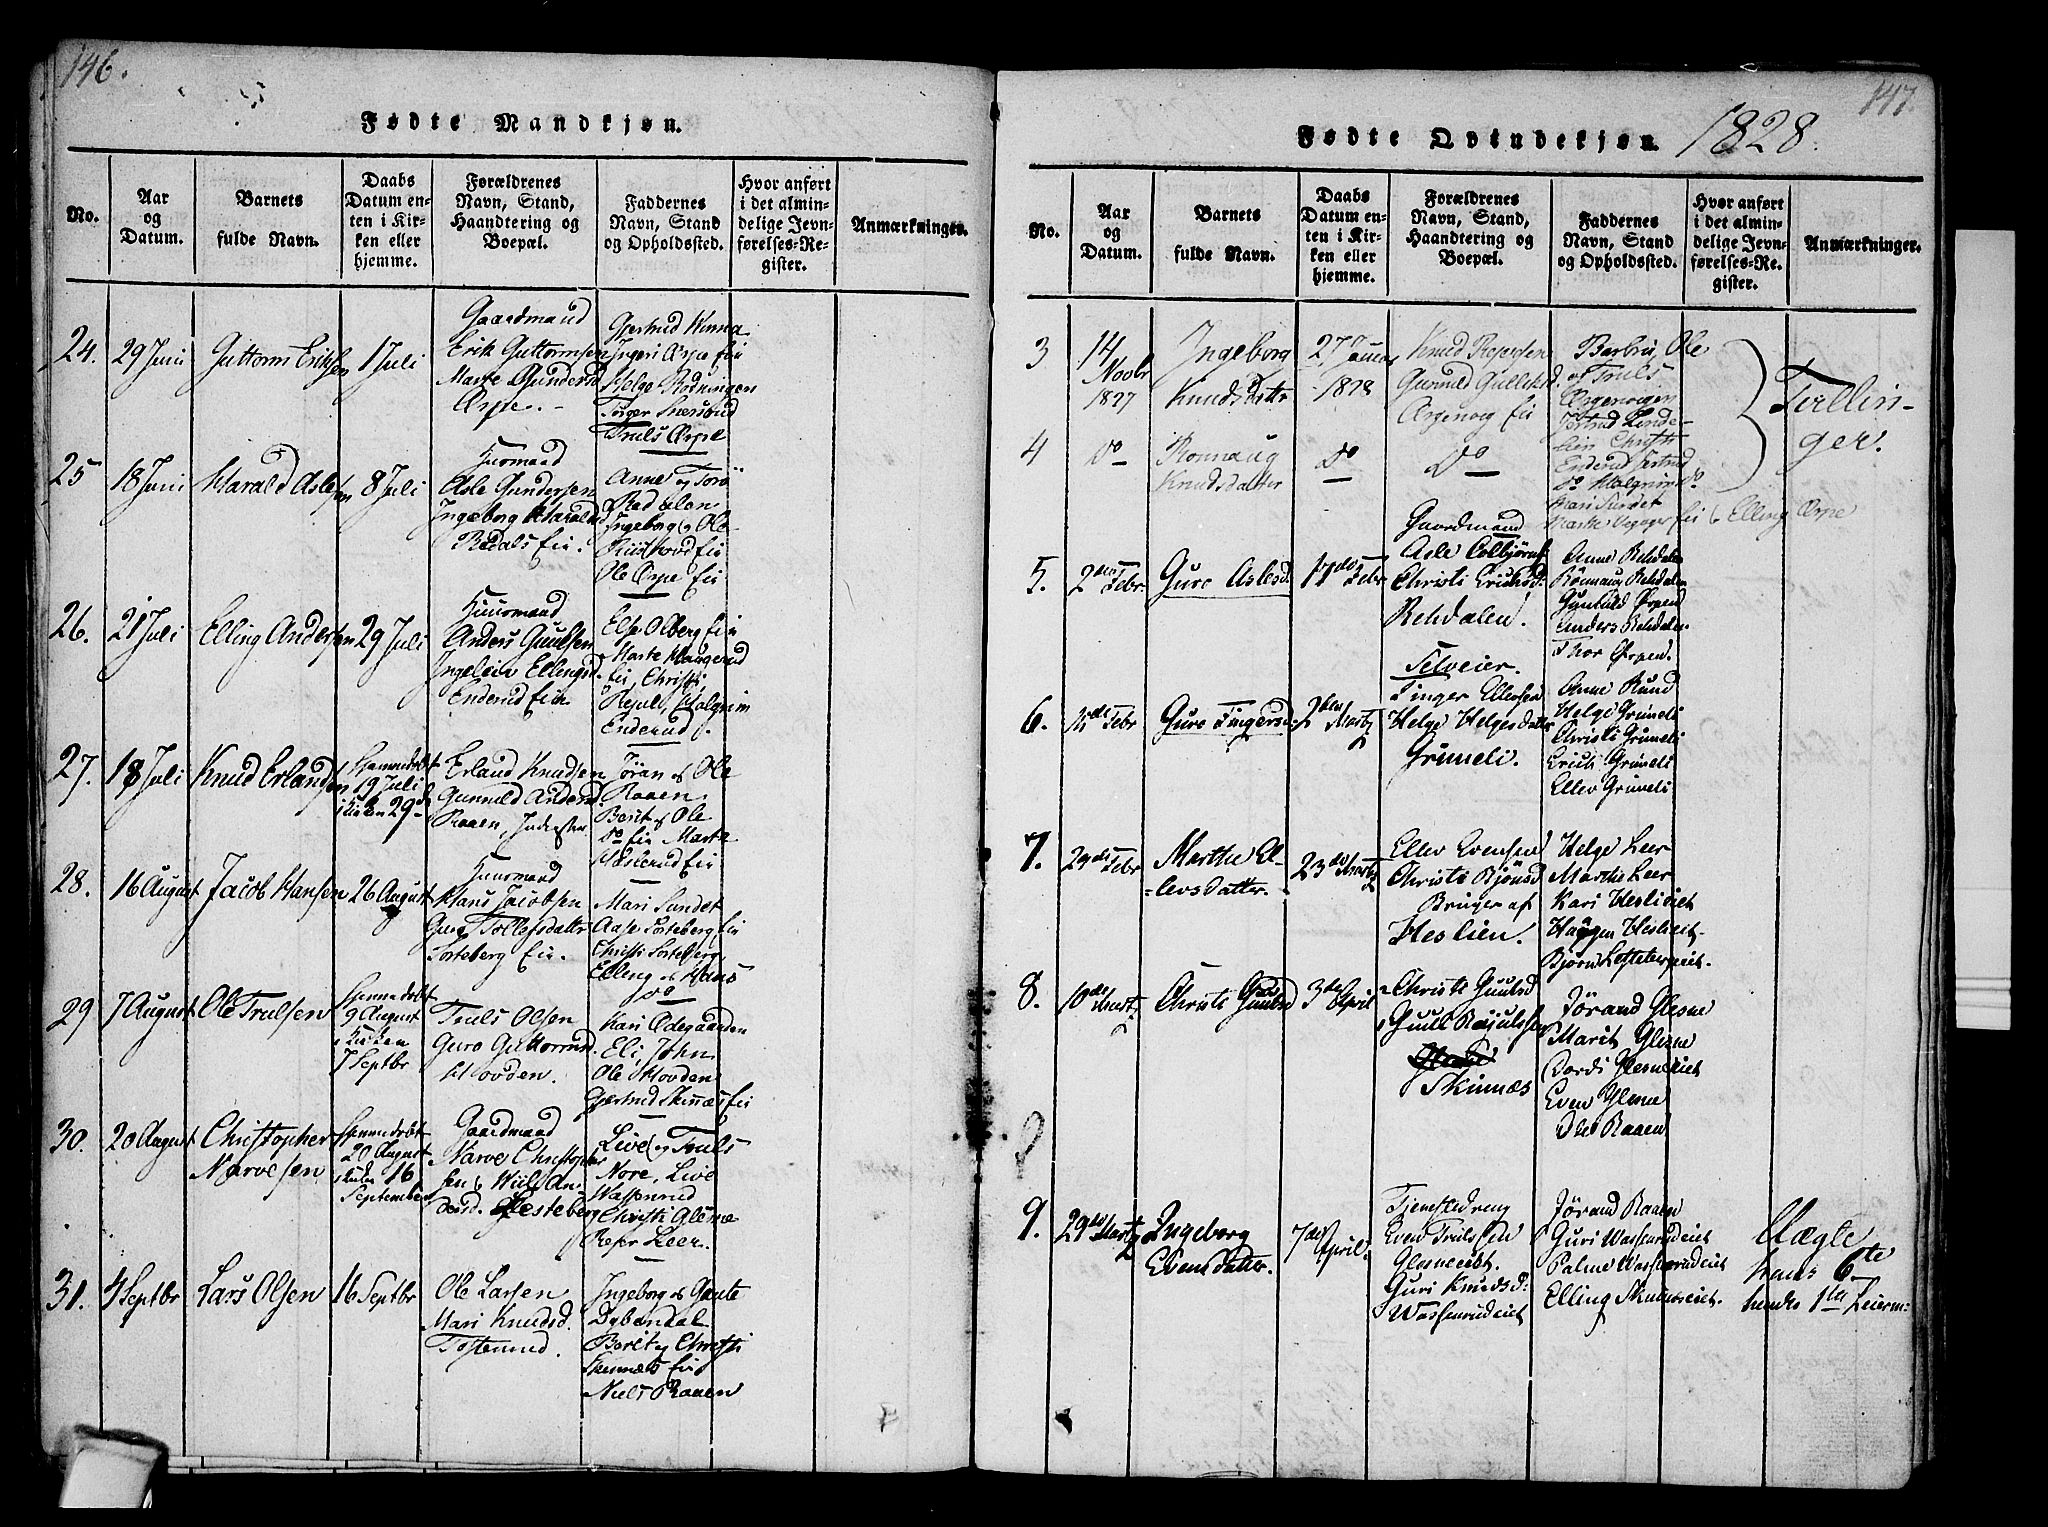 146.
Fødte Mandkjøn.
No.
Aar
og
Datum.
Barnets
fulde Navn.
Daabs
Datum en-
ten i Kir-
ken eller
hjemme.
Forældrenes
Navn, Stand,
Haandtering og
Boepæl.
Faddernes
Navn, Stand
og Opholdssted.
Hvor anført
i det almin-
delige Jevn-
førelses-Re-
gister.
Anmærkninger.
24.
29 Juni
Guttorm Eriksen
1 Juli
Gaardmand
Erik Guttormsen
Marte Gundersd
Ærpe.
Gjertrud Kinna
Ingeri Ærpe Eie
Helge Rodningen
Torger Snersrud
Truls Ærpe
25
18 Juni
Harald Aslesen
8 Juli
Huusmand
Asle Gundersen
Ingeborg Haralds
Redals Eie.
Anne og Torø
Rødalen
Ingeborg og Ole
Ole Ærpe Eie
26.
21 Juli
Elling Andersen
29 Juli
Huusmand
Anders Guulsen
Ingeleiv Ellingsd.
Enderud Eie.
Else Olberg Eie
Marte Haugerud
Eie, Christi
Halgrim
Enderud.
27.
18 Juli
Knud Erlandsen
Hiemmedøbt
19 Juli
i Kirken 29
Erland Knudsen
Gunnild Andersd.
Raaen,
Jøran og Ole
Raaen.
Berit og Ole
do Eie Marta
Haslerud Eie
28.
16 August
Jacob Hansen
26 August
Huusmand
Hans Jacobsen
Guro Tollefsdattr
Sorteberg Eie.
Mari Sundet
Aase Sorteberg Eie
Christi Sorteberg
Elling og Hans
do
29
7 August
Ole Trulsen
Hiemmedøbt
9 August
i Kirken
7 Septbr
Truls Olsen
Guro Guttormsd.
Hovden.
Kari Ødegaarden
Eli, John
Ole Hovden
Gjertrud Skinnæs Eie
30.
20 August
Christopher
Narvesen
Hiemmedøbt
20 August
i Kirken 16
September
Gaardmand
Narve Christopher-
sen
Glesteberg
Live og Truls
Nore, Live
Wassenrud
Christi Glesne
Peder Leer.
31.
4 Septbr
Lars Olsen
16 Septbr
Ole Larsen
Mari Knudsd.
Tostenrud.
Ingeborg og Gunte
Dybendal
Berit og Christi
Skinnæs Eie
Niels Raaen
147.
Fødte Qvindekjøn. 1828.
No.
Aar
og
Datum.
Barnets
fulde Navn.
Daabs
Datum en-
ten i Kir-
ken eller
hjemme.
Forældrenes
Navn, Stand,
Haandtering og
Boepæl.
Faddernes
Navn, Stand
og Opholdssted.
Hvor anført
i det almin-
delige Jevn-
førelses-Re-
gister.
Anmærkninger.
3
14
Novbr
1827
Ingeborg
Knudsdattr
27 Januar
1828
Knud
Gunnild Gulliksd.
Ærgenvig Eie
Barbru, Ole
og Truls
Ærgenvigen
Tvillin-
ger.
4
do
Rønnaug
Knudsdatter
do
do
Christi
Enderud Gertrud
do Halgrim do
Mari Sundet
Eie & Elling Ærpe
5.
2den Febr.
Guro Aslesd.
17de Febr
Gaardmand
Asle Colbjørns.
Christi
Rehdalen.
Anne Rehdalen
Rønnaug Rehdalen
Gunhild Ørpen
Anders Rehdalen
Thor Ørpen.
6.
Febr
Guro Fingersd.
2den Martz
Selveier.
Finger Ellefsen
Helge Helgesdatter
Grimeli.
Anne Rund
Helge Grimeli
Christi Grimeli
Grimeli
Ellev Grimeli
7.
29de Febr
Marthe El-
-levsdatter.
23de Martz
Ellev Evensen
Christi Bjønsd
Bruger af
Heslien.
Helge Leer
Marthe Leer
Kari Heslieiet
Haagen Heslieiet
8.
10de Martz
Christi Guulsd
3de April
Christi Guulsd
Skinnæs
Jørand Glesne
Marit Glesne
Bordi Glesneeiet
Even Glesne
Ole Raaen
9.
29de Martz
Ingeborg
Evensdatter.
7de April.
Tjenestedreng
Even Trulsen
Glesneeiet.
Guri Knudsd:
Wassenrudeiet
Jørand Raaen
Guri Wassenrudeiet
Palme Wassenrudeiet
Elling Skinnæseiet.
Uægte
hans 6te
hendes 1te Leierm: